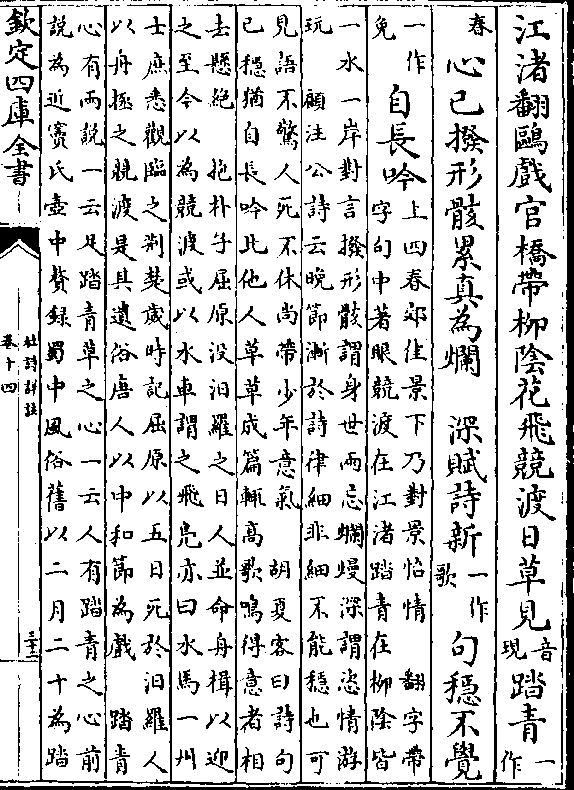 江渚翻鷗戲官橋帶柳陰花飛競渡日草見音現踏青一作
春心已撥形骸累真為爛 深賦詩新一作歌句穩不覺
一作免自長吟上四春郊佳景下乃對景怡情 翻字帶
字句中著眼競渡在江渚踏青在柳陰皆
一水一岸對言撥形骸謂身世兩忘爛熳深謂恣情游
玩 顧注公詩云晚節漸於詩律細非細不能穩也可
見語不驚人死不休尚帶少年意氣 胡夏客曰詩句
已穩猶自長吟比他人草草成篇輒高歌鳴得意者相
去懸絶 抱朴子屈原没汨羅之日人並命舟楫以迎
之至今以為競渡或以水車謂之飛鳧亦曰水馬一州
士庶悉觀臨之荆楚歲時記屈原以五日死於汨羅人
以舟拯之競渡是其遺俗唐人以中和節為戲 踏青
心有兩説一云足踏青草之心一云人有踏青之心前
説為近賽氏壺中贅録蜀中風俗舊以二月二十為踏
欽定四庫全書
杜詩詳註
卷十四
三十二